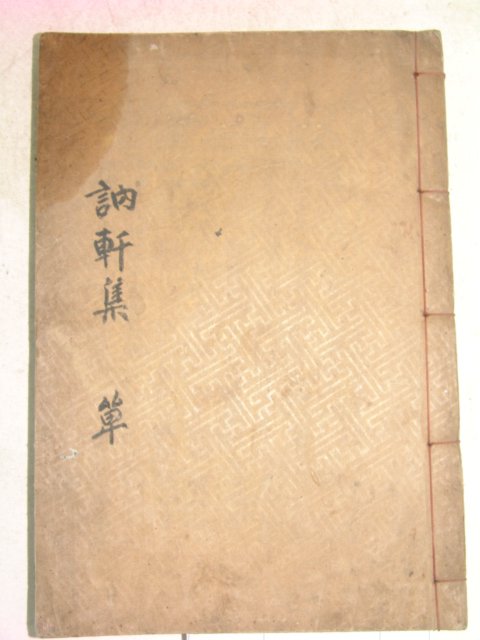 訥軒集 單